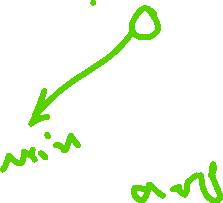 min
avg